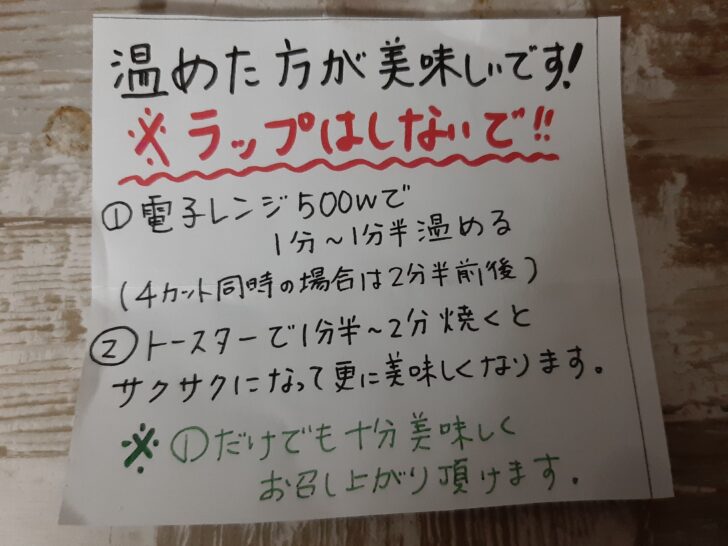 温めた方が美味しいです!
※ラップはしないで!!
①電子レンジ500wで
1分～1分半温める
(4カット同時の場合は2分半前後)
②トースターで1分半～2分焼くと
サクサクになって更に美味しくなります。
※①だけでも十分美味しく
お召し上がり頂けます。